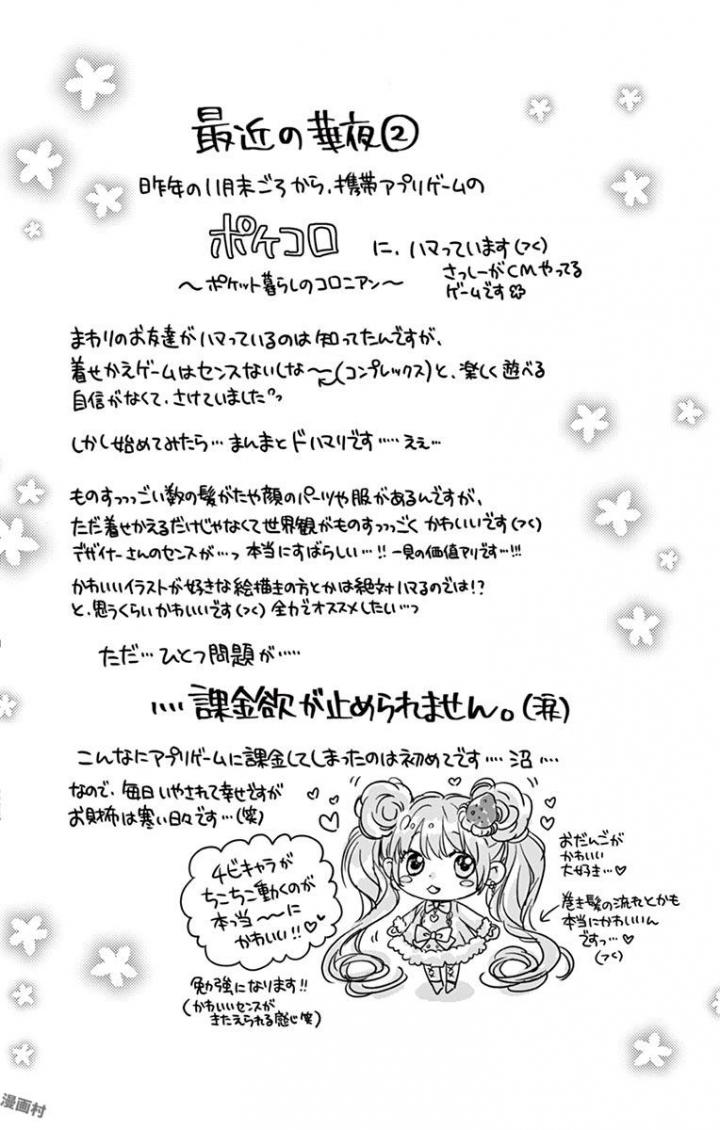 最近の華夜②
昨年の11月末ごろから、携帯アプリゲームの
ポケコロ に、ハマっています(つく)
〜ポケット暮らしのコロニアン〜
さっしーがCMやってる
ゲームです
まわりのお友達がハマっているのは知ってたんですが、
着せかえゲームはセンスないしな〜(コンプレックス)と、楽しく遊べる
自信がなくて、さけていました
しかし始めてみたら…まんまとドハマリです……ええ…
ものすっっっごい数の髪がたや顔のパーツや服があるんですが、
ただ着せかえるだけじゃなくて世界観がものすっっっごく かわいいです(つく)
デザイナーさんのセンスが…っ 本当にすばらしい…!! 一見の価値アリです…!!!
かわいいイラストが好きな絵描き の方とかは絶対ハマるのでは!?
と、思うくらいかわいいです(つく) 全力でオススメしたい…っ
ただ…ひとつ問題が……
…… 課金欲が止められません。(涙)
こんなにアプリゲームに課金してしまったのは初めてです…… 沼 ……
なので、毎日いやされて幸せですが
お財布は寒い日々です…(笑)
チビキャラが
ちこちこ動くのが
本っ当〜〜に
かわいい!!♡
勉強になります!!
(かわいいセンスが
きたえられる感じ笑)
おだんごが
かわいい
大好き…♡
巻き髪の流れとかも
本当にかわいいん
ですっ…♡
(つく)
漫画村